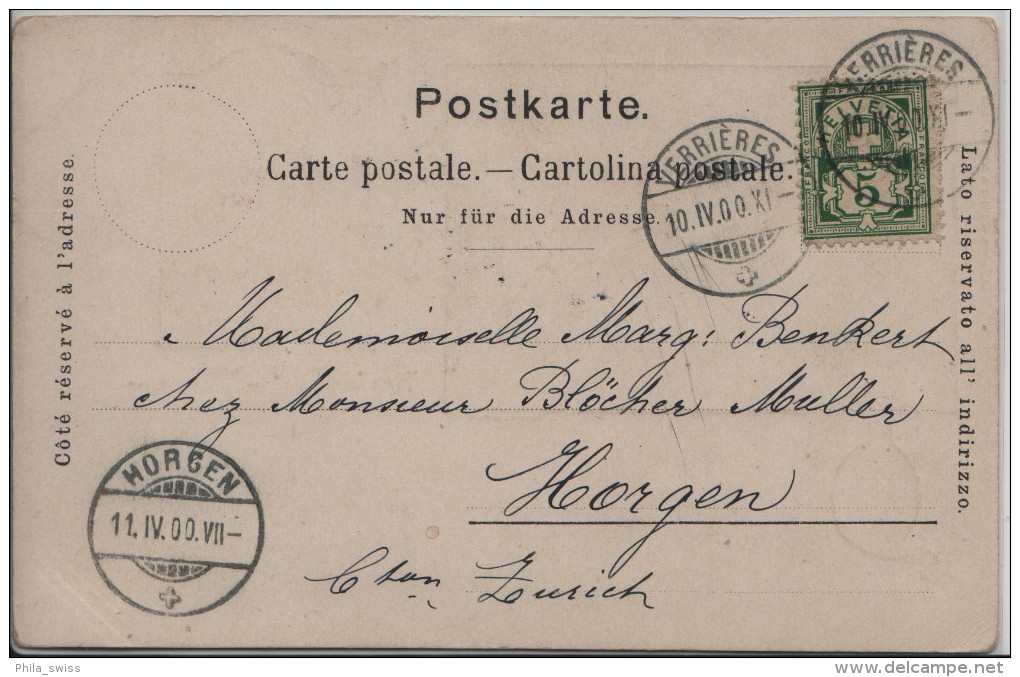 Postkarte.
Carte postale. — Cartolina postale.
Nur für die Adresse.
Côté réservé à l'adresse.
Lato riservato all' indirizzo.
VERRIÈRES
10. IV. 00. XI –
VERRIÈRES
10. IV. XI –
HELVETIA
FRANCO
5
Mademoiselle Marg: Benkert
chez Monsieur Blöcher Muller
Horgen
Cton Zurich
HORGEN
11. IV. 00. VII –
Phila_swiss
www.delcampe.net